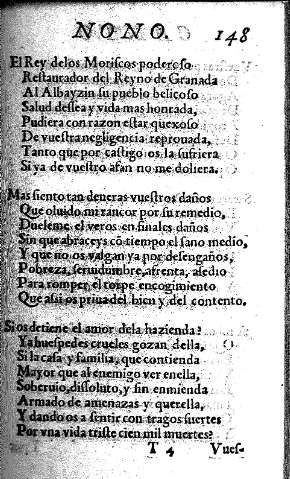 NONO. 148
El Rey delos Moriscos poderoso
Restaurador del Reyno de Granada
Al Albayzin su pueblo belicoso
Salud dessea y vida mas honrada,
Pudiera con razon estar quexoso
De vuestra negligencia reprouada,
Tanto que por castigo os la sufriera
Si ya de vuestro afan no me doliera.
Mas siento tan deueras vuestros daños
Que oluido mi rancor por su remedio,
Dueleme el veros en finales daños
Sin que abraceys cō tiempo el sano medio,
Y que no os valgan ya por desengaños,
Pobreza, seruidumbre, afrenta, asedio
Para romper el torpe encogimiento
Que assi os priua del bien y del contento.
Si os detiene el amor dela hazienda?
Ya huespedes crueles gozan della,
Si la casa y familia, que contienda
Mayor que al enemigo ver enella,
Soberuio, dissoluto, y sin enmienda
Armado de amenazas y querella,
Y dando os a sentir con tragos fuertes
Por vna vida triste cien mil muertes?
T 4 Vues-